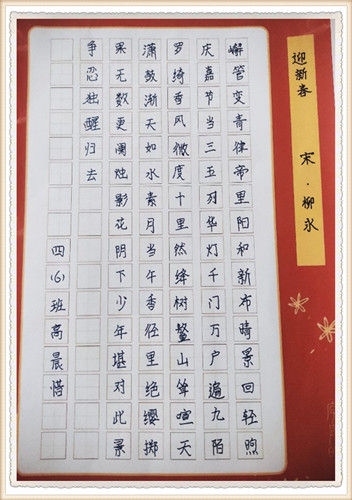 迎新春 宋·柳永
懈管变青律帝里阳和新布晴景回轻煦
庆嘉节当三五列华灯千门万户遍九陌
罗绮香风微度十里然绛树鳌山耸喧天
潇鼓渐天如水素月当午香径里绝缨掷
果无数更阑烛影花阴下少年堪对此景
争忍独醒归去
四(6)班高晨惜